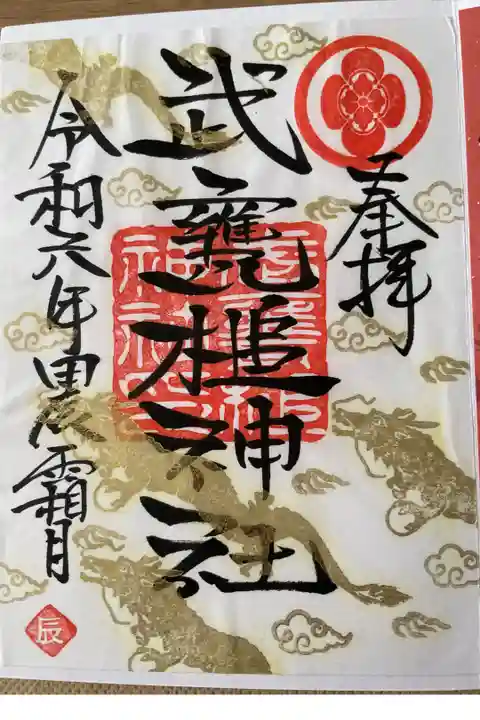 奉拝
武甕槌神社
令和六年農霜月
辰